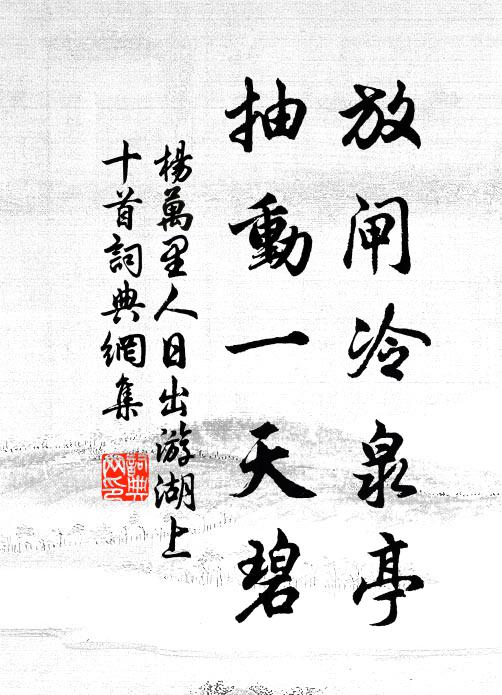 放闸冷泉亭
抽動一天碧
楊萬里人日出游湖上
十首詞典網集
詞典網印